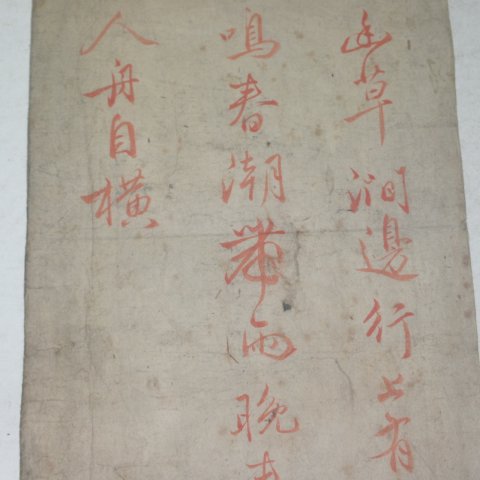 幽草澗邊行上有
鳴春潮帶雨晚
人舟自横